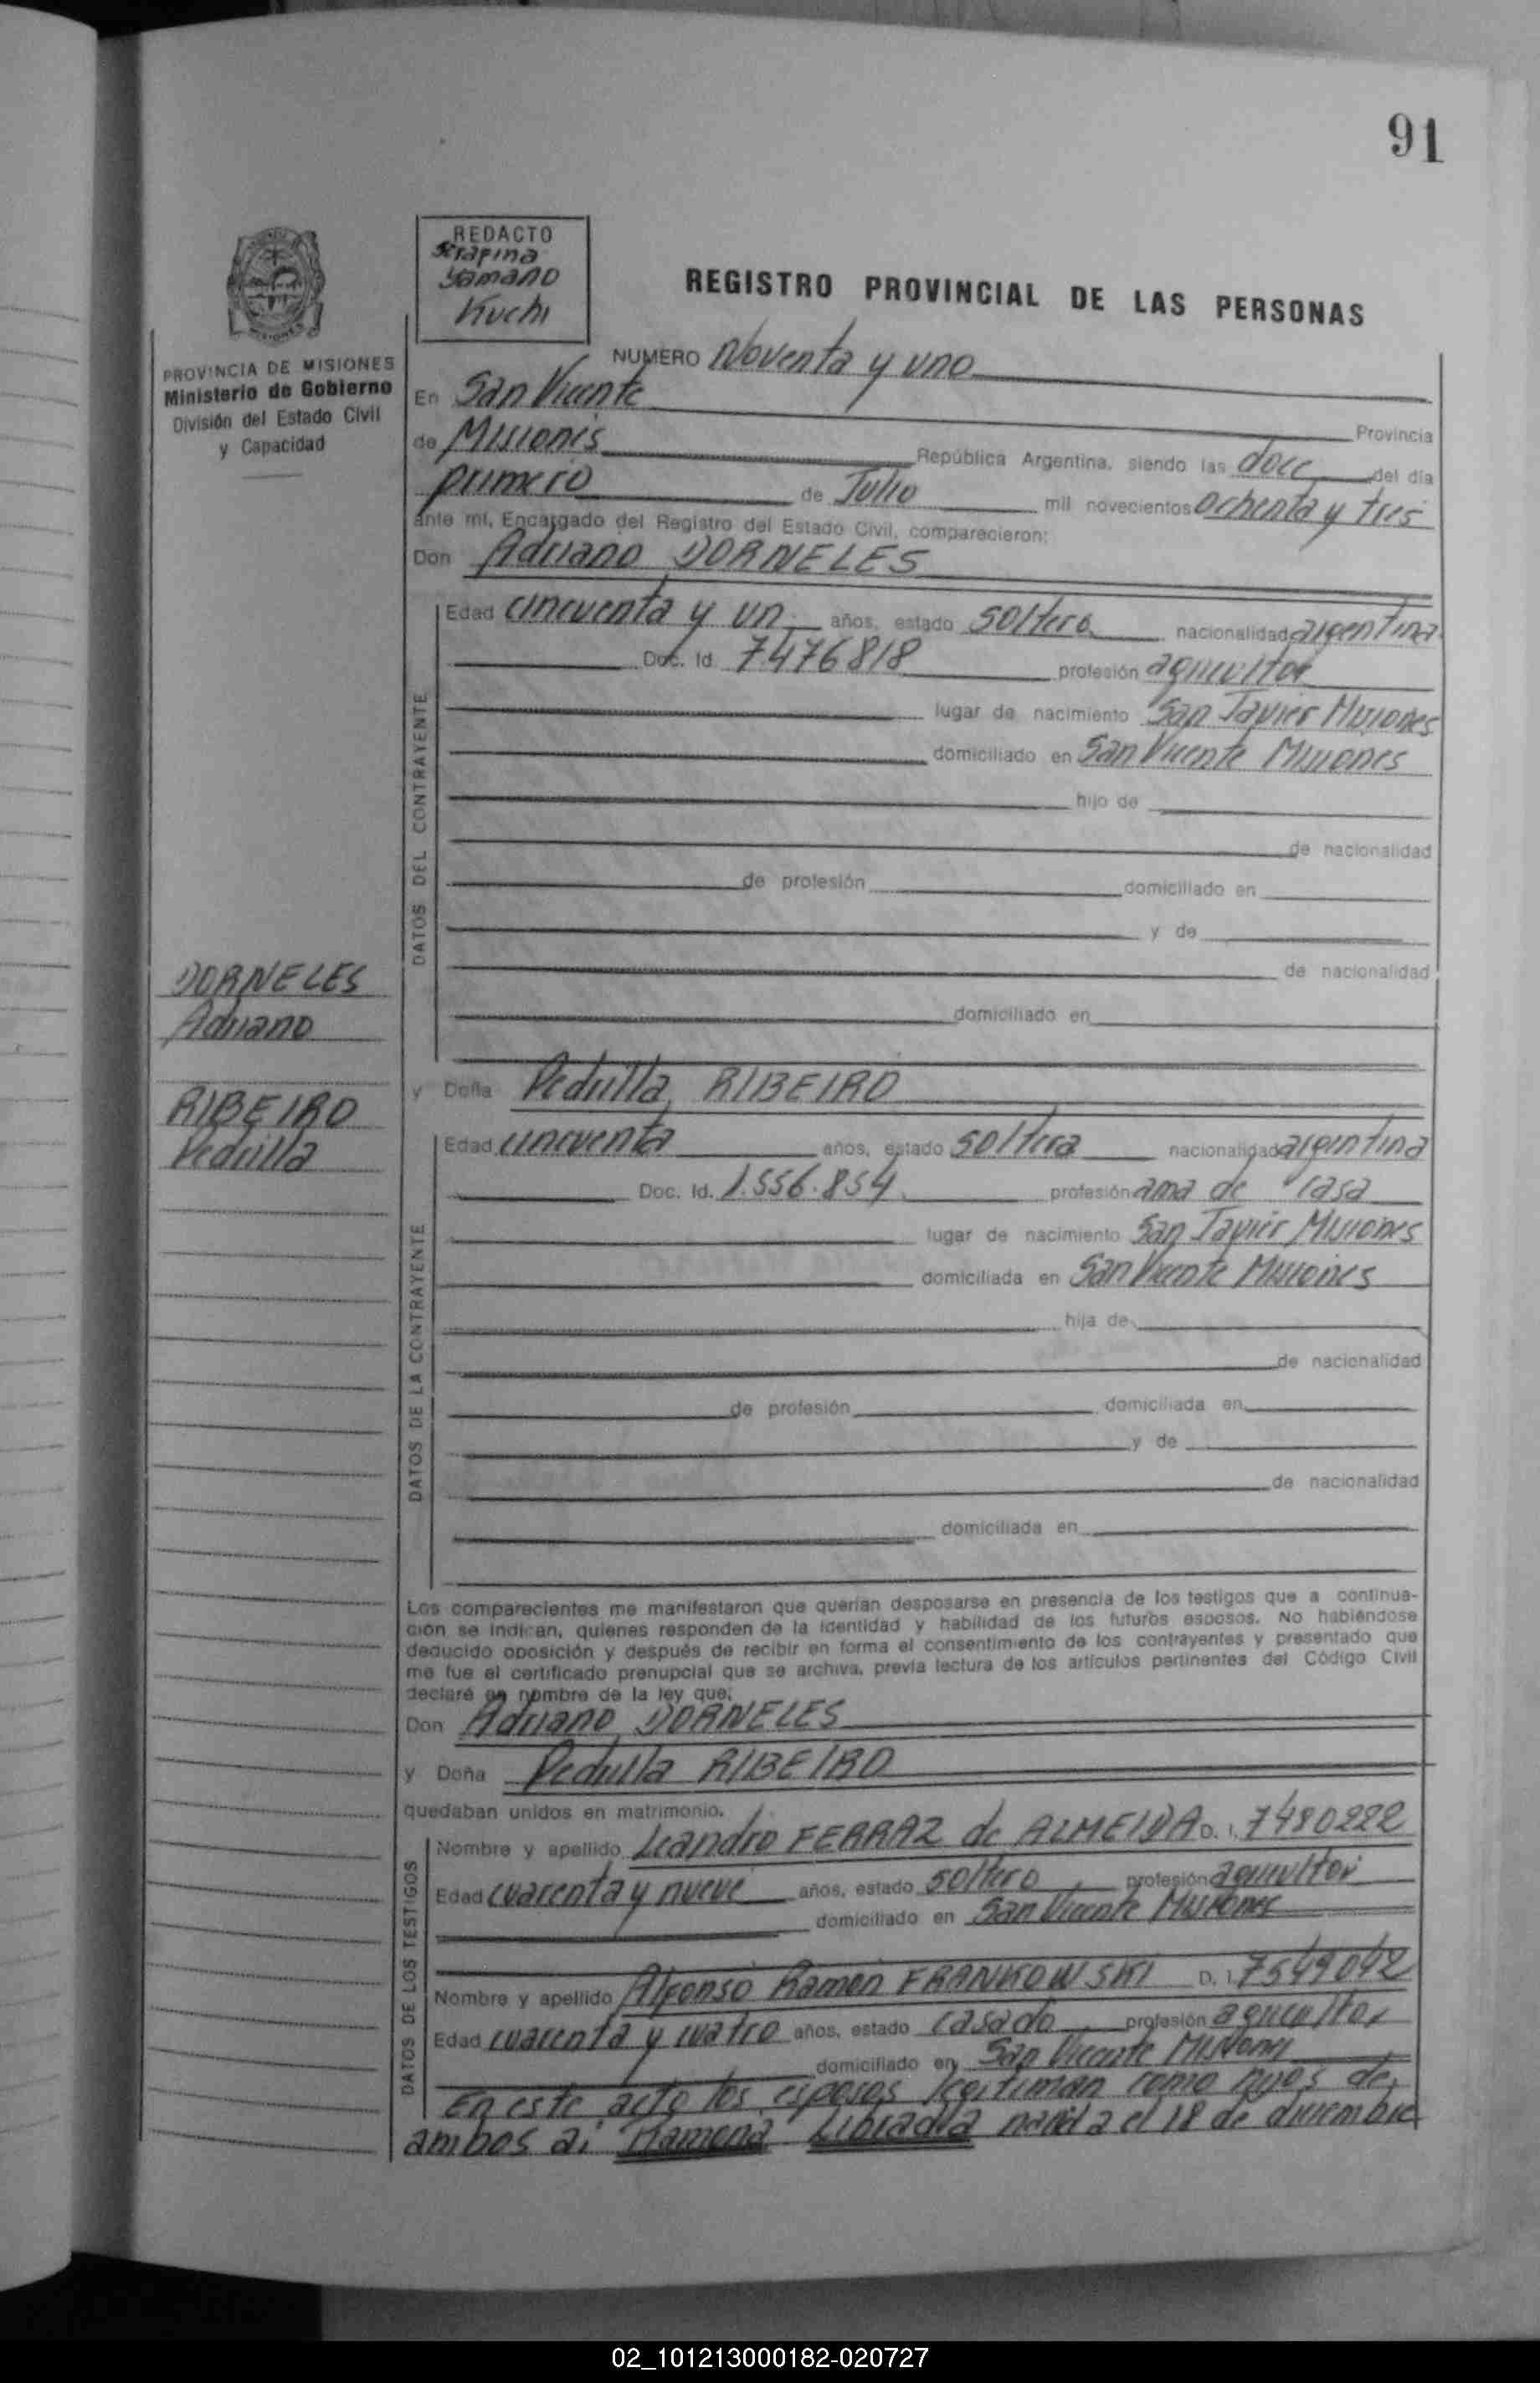 91
REDACTO
Serafina
Yamano
Kuchi
REGISTRO PROVINCIAL DE LAS PERSONAS
PROVINCIA DE MISIONES
Ministerio de Gobierno
División del Estado Civil
y Capacidad
NUMERO Noventa y uno
En San Vicente
Provincia
de Misiones República Argentina, siendo las doce del día
primero de Julio mil novecientos ochenta y tres
ante mí, Encargado del Registro del Estado Civil, comparecieron:
Don Adriano DORNELES
DATOS DEL CONTRAYENTE
Edad cincuenta y un años, estado soltero nacionalidad argentina
Doc. Id. 7476818 profesión agricultor
lugar de nacimiento San Javier Misiones
domiciliado en San Vicente Misiones
hijo de
de nacionalidad
de profesión domiciliado en
y de
de nacionalidad
domiciliado en
DORNELES
Adriano
RIBEIRO
Pedrilla
y Doña Pedrilla RIBEIRO
DATOS DE LA CONTRAYENTE
Edad cincuenta años, estado soltera nacionalidad argentina
Doc. Id. 1.556.854 profesión ama de casa
lugar de nacimiento San Javier Misiones
domiciliada en San Vicente Misiones
hija de
de nacionalidad
de profesión domiciliada en
y de
de nacionalidad
domiciliada en
Los comparecientes me manifestaron que querían desposarse en presencia de los testigos que a continua-
ción se indican, quienes responden de la identidad y habilidad de los futuros esposos. No habiéndose
deducido oposición y después de recibir en forma el consentimiento de los contrayentes y presentado que
me fue el certificado prenupcial que se archiva, previa lectura de los artículos pertinentes del Código Civil
declaré en nombre de la ley que:
Don Adriano DORNELES
y Doña Pedrilla RIBEIRO
quedaban unidos en matrimonio.
DATOS DE LOS TESTIGOS
Nombre y apellido Leandro FERRAZ de ALMEIDA D. I. 7480222
Edad cuarenta y nueve años, estado soltero profesión agricultor
domiciliado en San Vicente Misiones
Nombre y apellido Alfonso Ramón FRANKOWSKI D. I. 7549042
Edad cuarenta y cuatro años, estado casado profesión agricultor
domiciliado en San Vicente Misiones
En este acto los esposos legitiman como hijos de
ambos a: Ramona Libradia nacida el 18 de diciembre
02_101213000182-020727